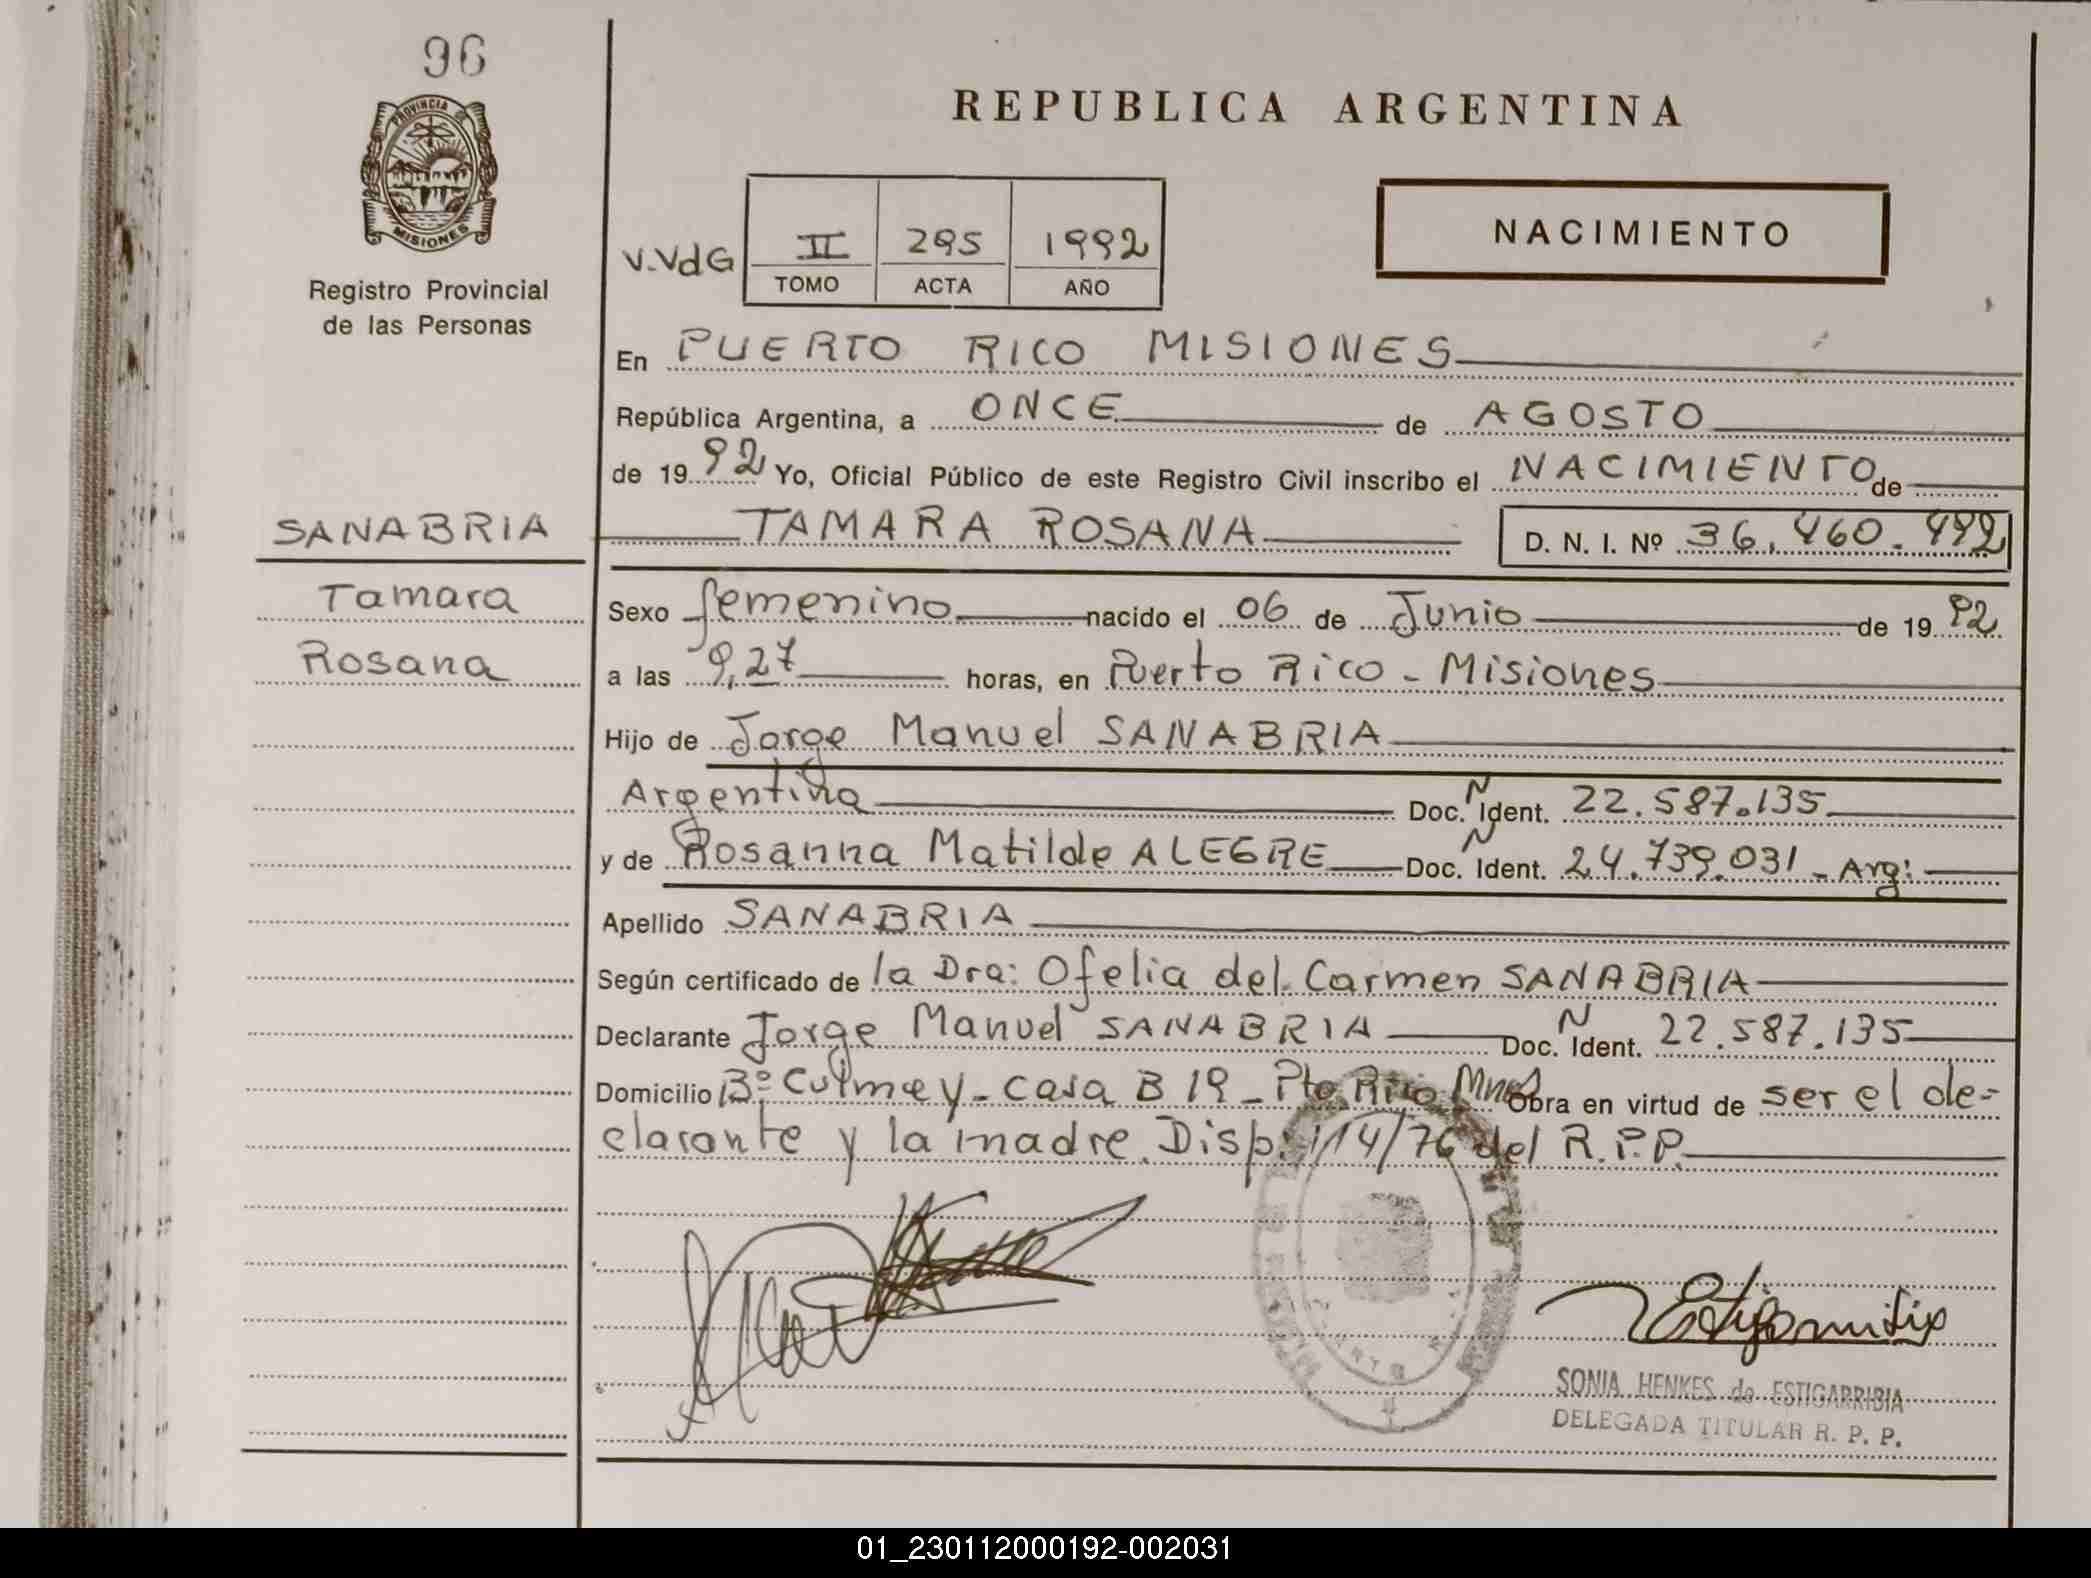 96
PROVINCIA
MISIONES
Registro Provincial
de las Personas
SANABRIA
Tamara
Rosana
REPUBLICA ARGENTINA
NACIMIENTO
V.VdG II 295 1992
TOMO ACTA AÑO
En PUERTO RICO MISIONES
República Argentina, a ONCE de AGOSTO
de 1992 Yo, Oficial Público de este Registro Civil inscribo el NACIMIENTO de
TAMARA ROSANA D. N. I. Nº 36.460.492
Sexo femenino nacido el 06 de Junio de 1992
a las 9,27 horas, en Puerto Rico - Misiones
Hijo de Jorge Manuel SANABRIA
Argentina Doc. N Ident. 22.587.135
y de Rosanna Matilde ALEGRE Doc. N Ident. 24.739.031 - Arg:
Apellido SANABRIA
Según certificado de la Dra: Ofelia del Carmen SANABRIA
Declarante Jorge Manuel SANABRIA Doc. N Ident. 22.587.135
Domicilio Bº Culmey - Casa B 19 - Pto Rico Mnes Obra en virtud de ser el de-
clarante y la madre. Disp. 114/76 del R.P.P.
SONIA HENKES de ESTIGARRIBIA
DELEGADA TITULAR R. P. P.
01_230112000192-002031